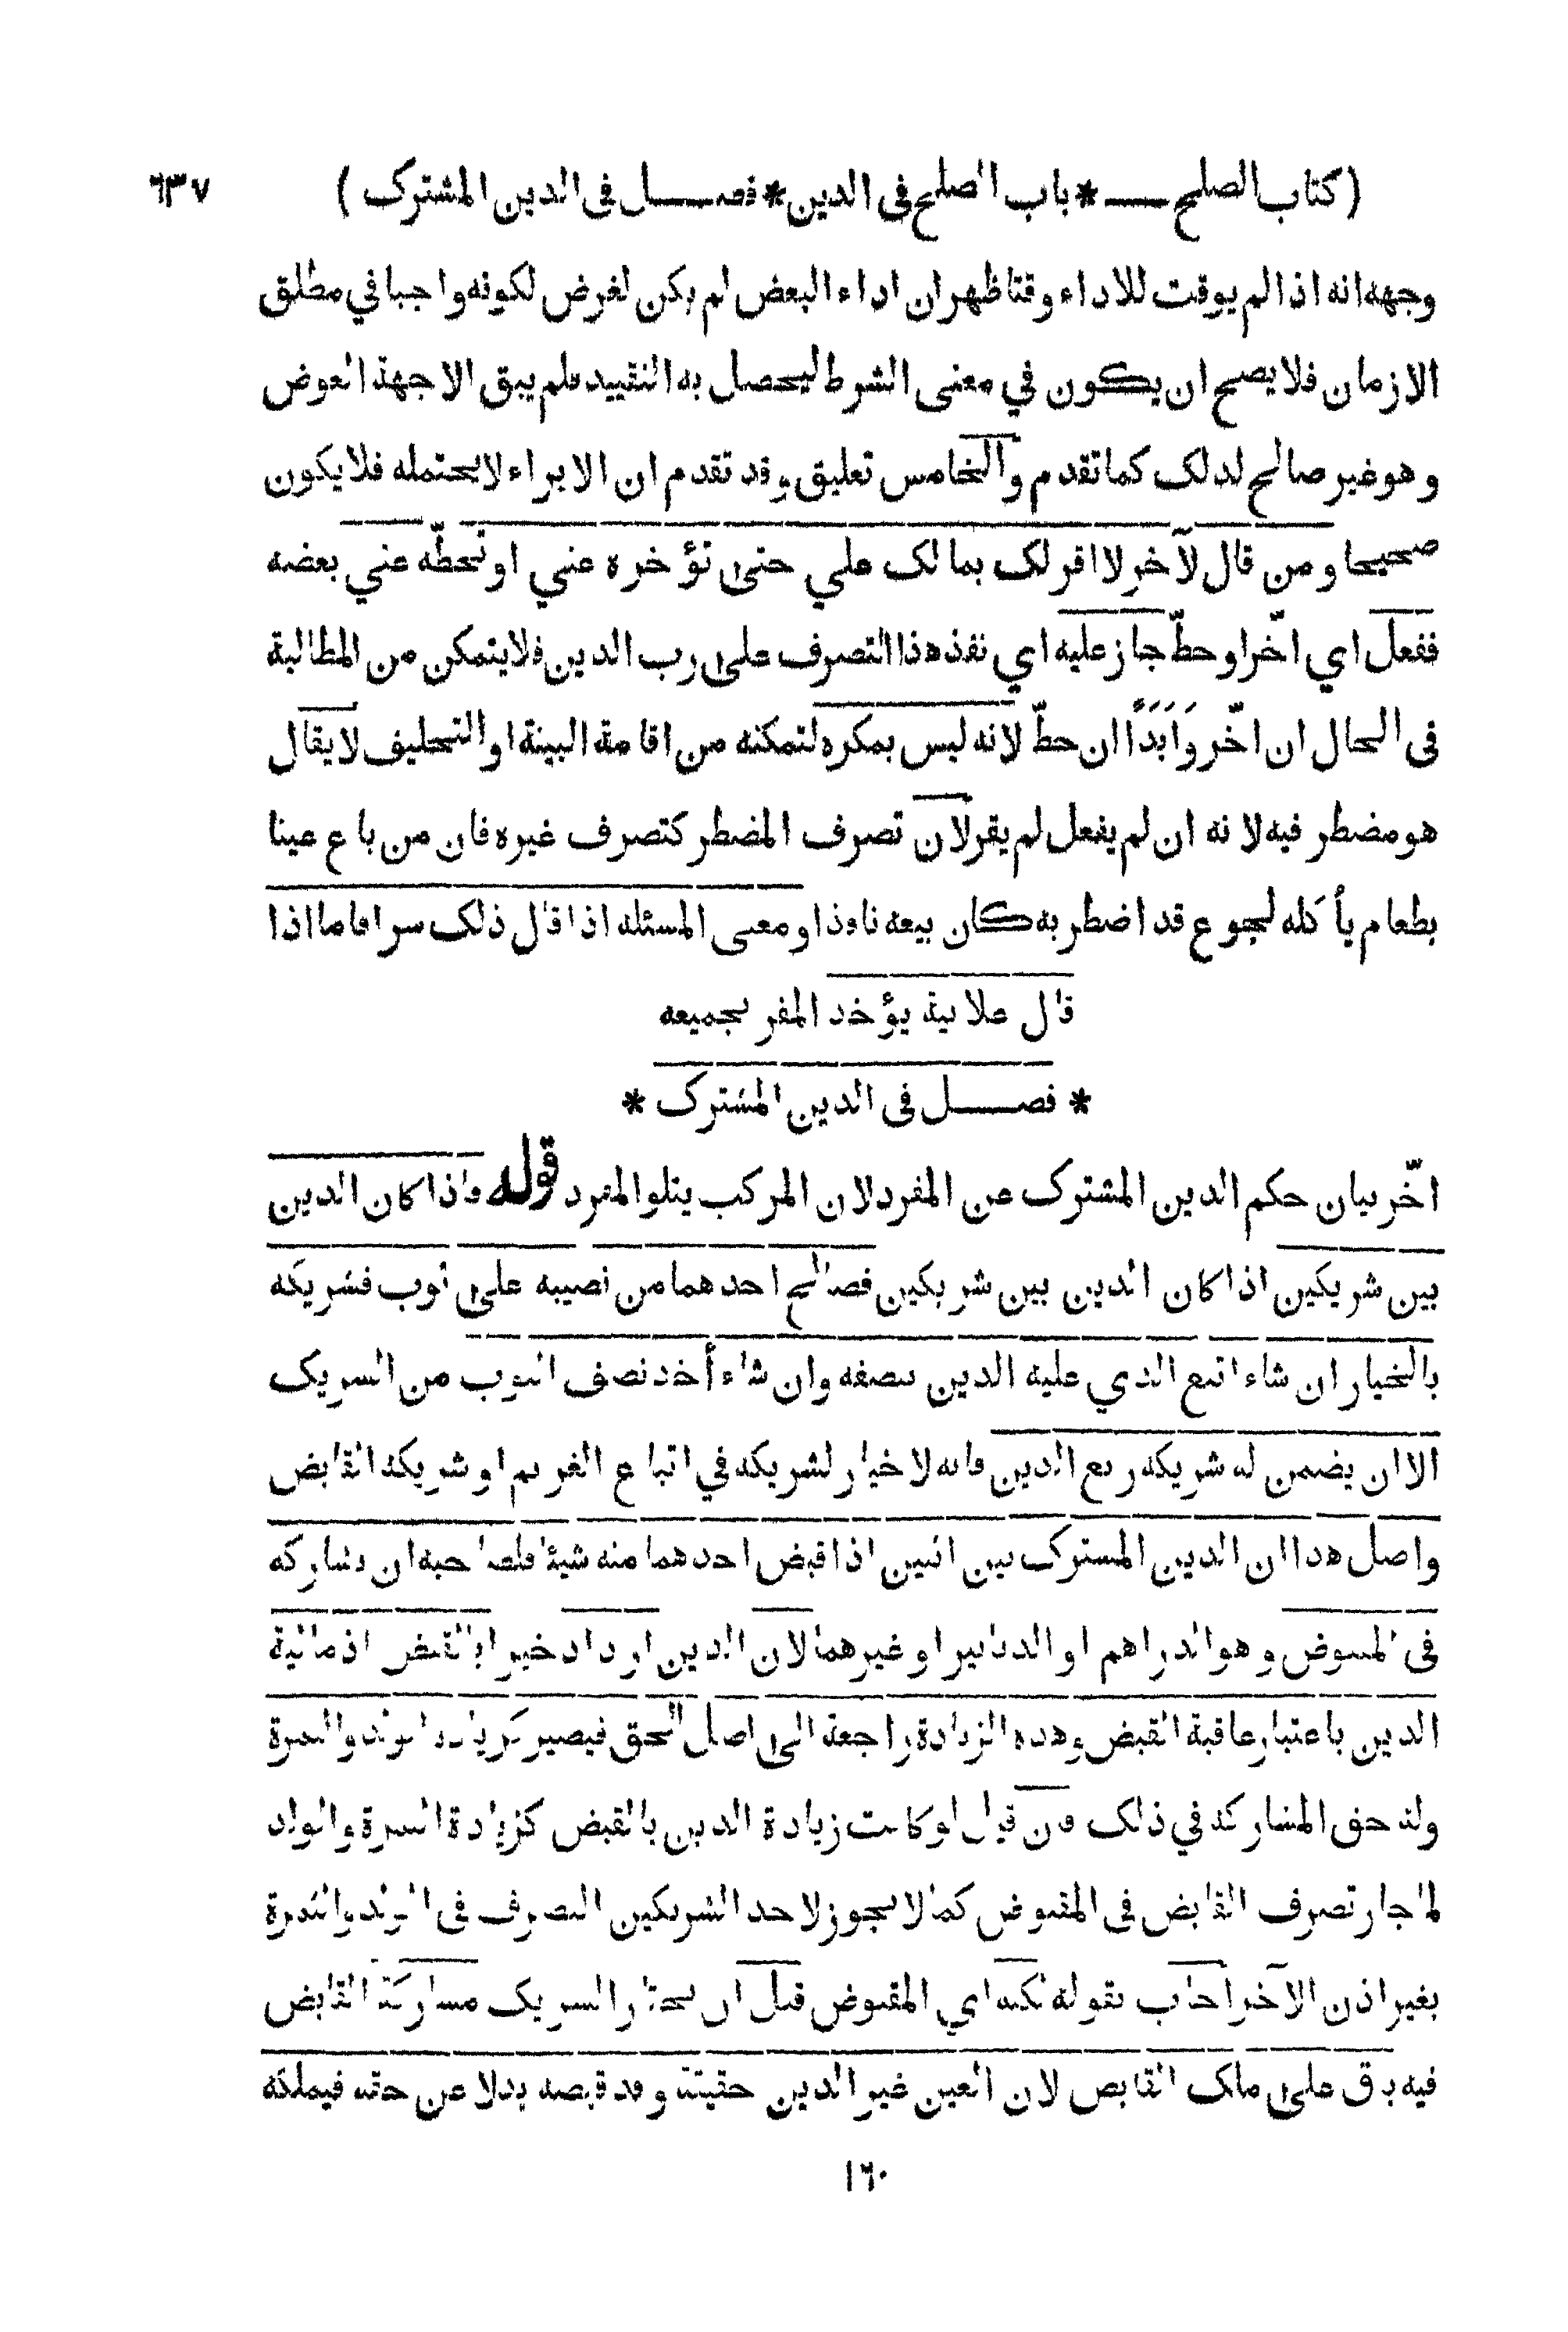 ( كتاب الصلح * باب الصلح في الدين * فصل في الدين المشترك ) ٦٣٧
وجهه انه اذا لم يوقت للاداء وقتا ظهر ان اداء البعض لم يكن لغرض لكونه واجبا في مطلق
الازمان فلا يصح ان يكون في معنى الشرط ليحصل به التقييد فلم يبق الا جهة العوض
وهو غير صالح لذلك كما تقدم والخامس تعليق وقد تقدم ان الابراء لا يحتمله فلا يكون
صحيحا ومن قال لآخر لا اقر لك بما لك علي حتى تؤخره عني او تحطّه عني بعضه
ففعل اي اخّر او حطّ جاز عليه اي نفذ هذا التصرف على رب الدين فلا يتمكن من المطالبة
في الحال ان اخّر وَاَبَدًا ان حطّ لانه ليس بمكره لتمكنه من اقامة البينة او التحليف لا يقال
هو مضطر فيه لانه ان لم يفعل لم يقر لان تصرف المضطر كتصرف غيره فان من باع عينا
بطعام يأكله لجوع قد اضطر به كان بيعه نافذا ومعنى المسئله اذا قال ذلك سرا فاما اذا
قال علانية يؤخذ المقر بجميعه
* فصل في الدين المشترك *
اخّر بيان حكم الدين المشترك عن المفرد لان المركب يتلو المفرد قوله واذا كان الدين
بين شريكين اذا كان الدين بين شريكين فصالح احدهما من نصيبه على ثوب فشريكه
بالخيار ان شاء اتبع الذي عليه الدين بنصفه وان شاء أخذ نصف الثوب من الشريك
الا ان يضمن له شريكه ربع الدين فانه لا خيار لشريكه في اتباع الغريم او شريكه القابض
واصل هذا ان الدين المشترك بين اثنين اذا قبض احدهما منه شيئا فلصاحبه ان يشاركه
في المقبوض وهو الدراهم او الدنانير او غيرهما لان الدين ازداد خيرا بالقبض اذ مالية
الدين باعتبار عاقبة القبض وهذه الزيادة راجعة الى اصل الحق فيصير كزيادة الولد والثمرة
وله حق المشاركة في ذلك فان قيل لو كانت زيادة الدين بالقبض كزيادة الثمرة والولد
لما جاز تصرف القابض في المقبوض كما لا يجوز لاحد الشريكين التصرف في الولد والثمرة
بغير اذن الآخر اجاب بقوله لكنه اي المقبوض قبل ان يختار الشريك مشاركة القابض
فيه باق على ملك القابض لان العين غير الدين حقيقة وقد قبضه بدلا عن حقه فيملكه
١٦٠